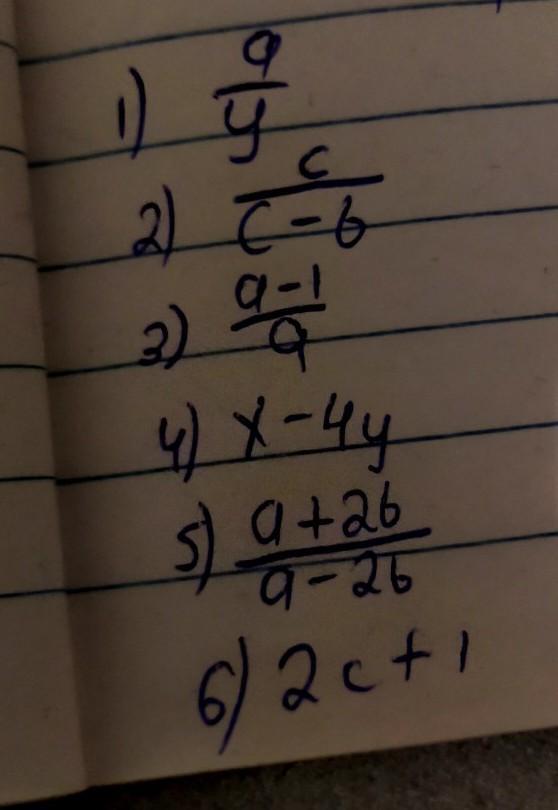 1) a/y
2) c/(c-b)
3) (a-1)/a
4) x-4y
5) (a+2b)/(a-2b)
6) 2c+1